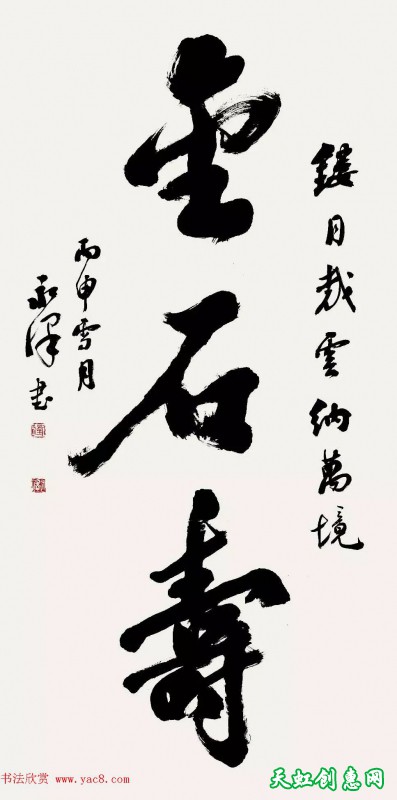 鏤月裁雲納萬境
金石壽
丙申雪月
永澤书
书法欣赏 www.yac8.com
天虹创惠网